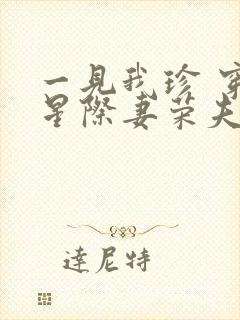 一見我珍 穿
星際妻榮夫
達尼特